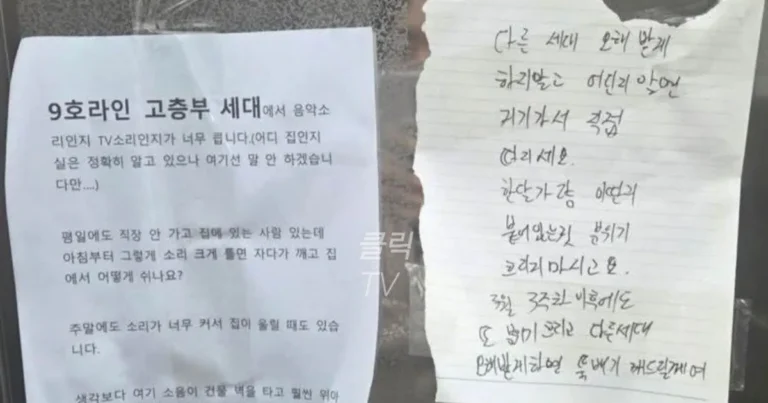 9호라인 고층부 세대에서 음악소
리인지 TV소리인지가 너무 큽니다.(어디 집인지
실은 정확히 알고 있으나 여기선 말 안 하겠습니
다만....)
평일에도 직장 안 가고 집에 있는 사람 있는데
아침부터 그렇게 소리 크게 틀면 자다가 깨고 집
에서 어떻게 쉬나요?
주말에도 소리가 너무 커서 집이 울릴 때도 있습
니다.
생각보다 여기 소음이 건물 벽을 타고 훨씬 위아
다른 세대 오해 받게
하지말고 어딘지 알면
거기가서 직접
따지세요.
한달가량 이딴거
붙어있는것 분위기
흐리지마시고요.
3월 3주차 이후에도
또 분위기 흐리고 다른세대
오해받게하면 뚝배기 깨드릴게여
클릭
TV